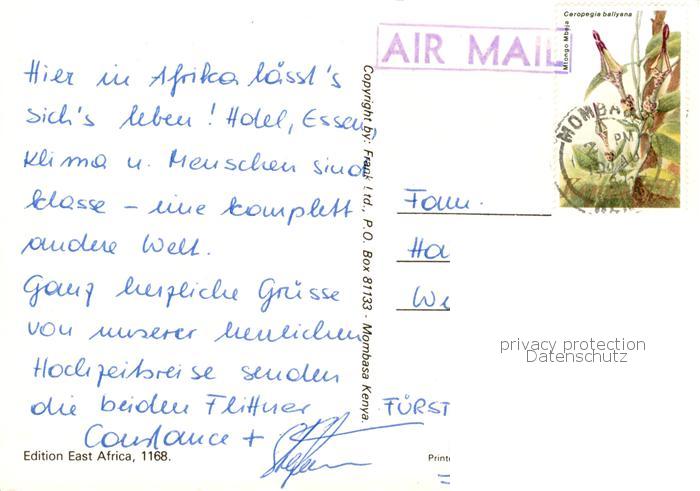 AIR MAIL
Ceropegia ballyana
Mtongo Mbeja
MOMBASA
PM
Hier in Afrika lässt's
sich's leben! Hotel, Essen,
Klima u. Menschen sind
klasse – eine komplett
andere Welt.
Ganz herzliche Grüsse
von unserer herrlichen
Hochzeitsreise senden
die beiden Flittner
Constance + Stefan
Copyright by: Frank Ltd., P.O. Box 81133 - Mombasa Kenya.
Fam.
Ha
We
FÜRST
privacy protection
Datenschutz
Edition East Africa, 1168.
Printe